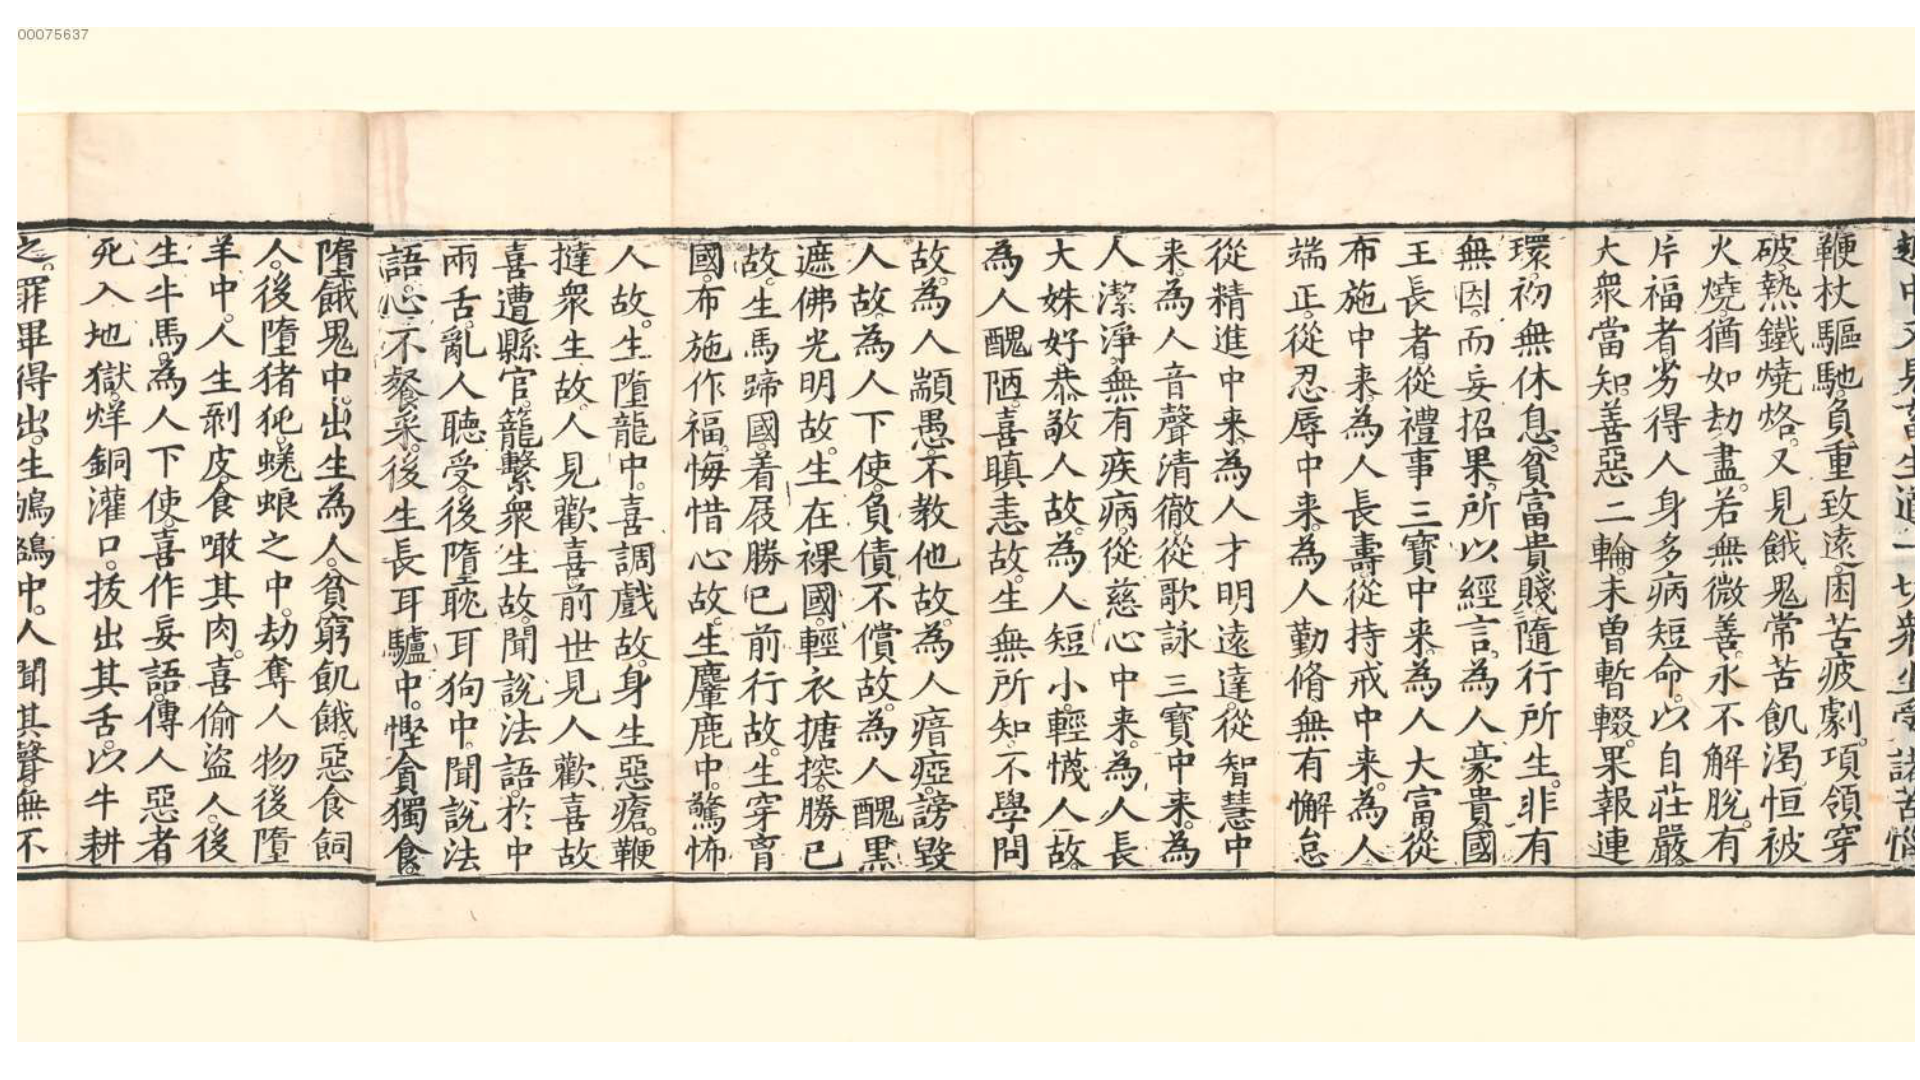 00075637
鞭杖驅馳。負重致遠。困苦疲劇。項領穿
破。熱鐵燒烙。又見餓鬼常苦飢渴恒被
火燒。猶如劫盡。若無微善。永不解脫。有
片福者。劣得人身多病短命。以自莊嚴
大衆當知。善惡二輪。未曽暫輟。果報連
環。初無休息。貧富貴賤。隨行所生。非有
無因。而妄招果。所以經言。為人豪貴。國
王長者。從禮事三寶中来。為人大富。從
布施中来。為人長壽。從持戒中来。為人
端正。從忍辱中来。為人勤脩無有懈怠
從精進中来。為人才明遠達。從智慧中
来。為人音聲清徹。從歌詠三寶中来。為
人潔淨。無有疾病。從慈心中来。為人長
大姝好。恭敬人故。為人短小。輕懱人故。
為人醜陋。喜瞋恚故。生無所知。不學問
故。為人顓愚。不教他故。為人瘖瘂。謗毀
人故。為人下使。負債不償故。為人醜黑
遮佛光明故。生在裸國。輕衣搪揬勝己
故。生馬蹄國。着屐勝己前行故。生穿胷
國。布施作福。悔惜心故。生麞鹿中。驚怖
人故。生墮龍中。喜調戲故。身生惡瘡。鞭
撻衆生故。人見歡喜。前世見人歡喜故
喜遭縣官。籠繫衆生故。聞說法語。於中
兩舌。亂人聽受。後墮耽耳狗中。聞說法
語。心不餐采。後生長耳驢中。慳貪獨食。
墮餓鬼中。出生為人。貧窮飢餓。惡食飼
人。後墮猪㹠蜣蜋之中。劫奪人物後墮
羊中。人生剥皮。食噉其肉。喜偷盜人。後
生牛馬。為人下使。喜作妄語。傳人惡者
死入地獄。烊銅灌口。拔出其舌。以牛耕
之。罪畢得出。生鴝鵒中。人聞其聲。無不